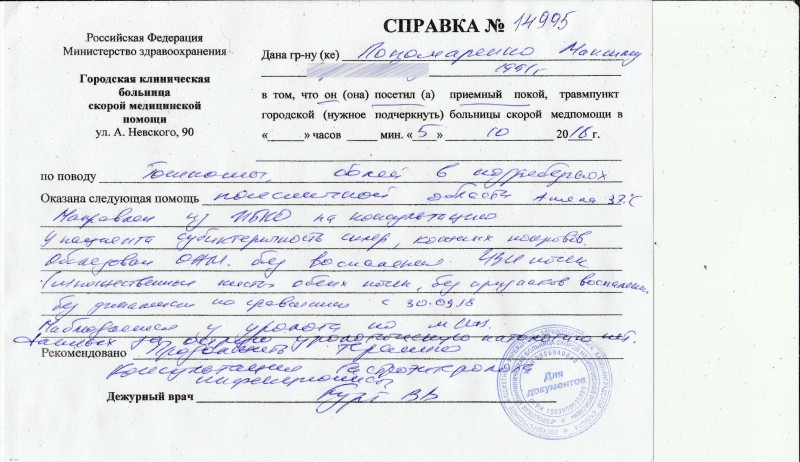 Российская Федерация
Министерство здравоохранения
Городская клиническая
больница
скорой медицинской
помощи
ул. А. Невского, 90
СПРАВКА № 14995
Дана гр-ну (ке) Пономаренко Максиму
1991г
в том, что он (она) посетил (а) приемный покой, травмпункт
городской (нужное подчеркнуть) больницы скорой медпомощи в
« » часов мин. «5» 10 2018 г.
по поводу Тошноты, болей в подреберьях
Оказана следующая помощь поясничной области 37°С
Направлен из на консультацию
У пациента субиктеричность склер, кожных покровов.
Обследован ОАМ. без воспаления УЗИ почек
(множественные кисты обеих почек, без признаков воспаления
без динамики по сравнению с 30.09.18
Наблюдается у уролога по м/ж.
Данных за острую урологическую патологию нет.
Рекомендовано Продолжить терапию
Консультация Гастроэнтеролога
инфекциониста
Дежурный врач
Для
документов